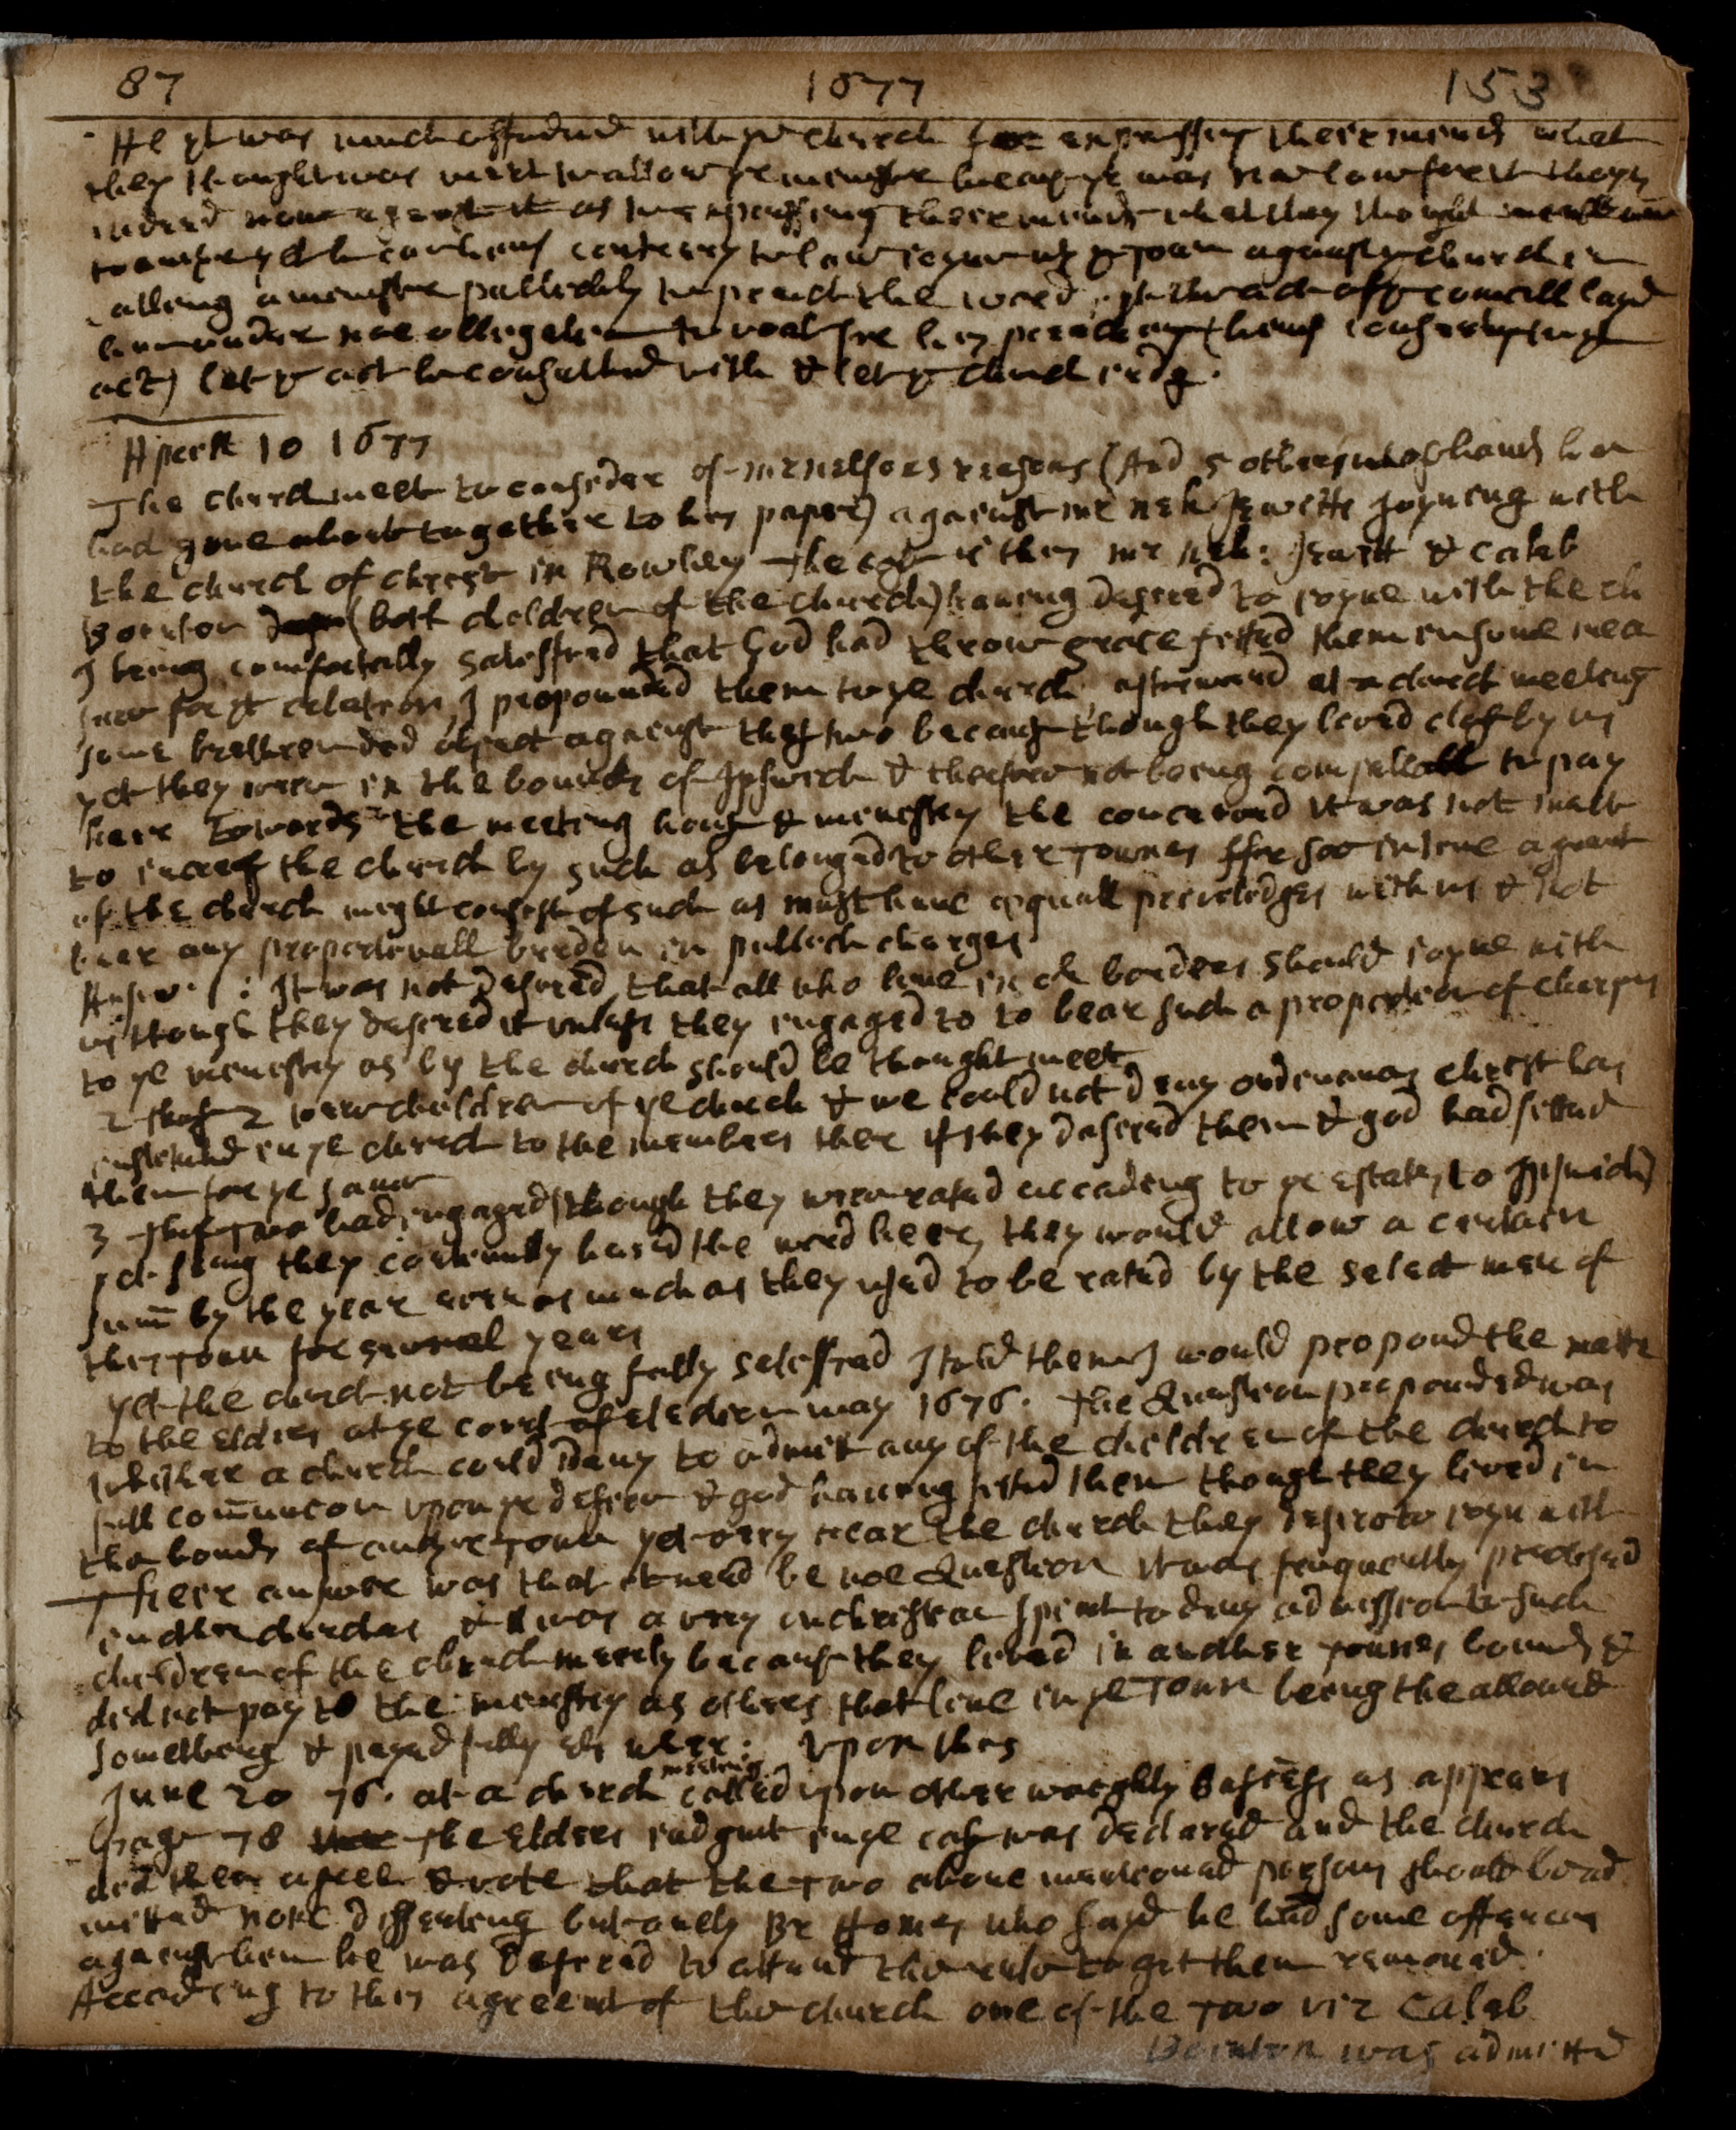 87 1677 153
He yt was much offended with ye church for expressing theire minds what
they thought was meet to allow ye minister because ye was now law for it though
indeed expressing theire minds what they thought
contrary to law ye Town against ye church in
calling a minister publickly to preach the word act of ye councill layd
him under noe obligation to his preaching
act) let ye act be consulted with & let ye church judg.
Aperill 10 1677
The church meet to consider of mr nelsons reasons (And 5 others whos hands hee
had gone about to gather to his paper) against mr neh Jewitts joyning with
the church of christ in Rowley The case is this mr neh: Jewitt & Caleb
Boenton (both children of the church) haveing desired to joyne with the ch
I being comfortably satesfied that God had throw grace fitted them in some mea
sure for yt relation, I propounded them to ye church, afterward at a church meeting
some bretheren did object against thes two because though they lived close by us
yet they were in the bounds of Ipswich & therfore not being compellabl to pay
here towards the meeting hous & menestry the conceived it was not meet
to increas the church by such as belonged to other Townes ffor soe in time a great
of the church might consist of such as must have equall preveledges with us & not
bear any proportionall burden in publick charges
Answr 1: It was not desired that all who live in our borders should joyne with
us though they desired it unless they engaged to to bear such a proportion of charges
to ye menestry as by the church should be thought meet
2 Thes 2 were children of ye church & we could not deny ordenances christ has
in ye church to the members ther if they desired them & god had fitted
them for ye same
3 Thes Two had engaged (though they were rated according to ye estates to Ipswich)
yet seing they constantly heard the word here, they would allow a certain
sum by the year even as much as they used to be rated by the select men of
this Town for severall years
yet the church not being fully satesfied I told them I would propond the matter
to the Elders at ye court of election may 1676. The Question propounded was
whether a church could deny to admit any of the children of the church to
full comunion upon ye desire & god having fitted them though they lived in
the bounds of another Town yet very near the church they desire to joyn with
Theire answer was that it need be noe Question it was frequently practised
in other churches & it was a very unchristian spirit to deny admission to such
children of the church merely because they lived in another Townes bounds &
did not pay to the menestry as others that live in ye Town being the allowed
something & payed fully els wher: Upon this
June 20 76. at a church meeting called upon other weighty as appears
page 78 The Elders judgmt in ye case was declared and the church
did then agree & vote that the Two above mentioned persons should be ad
mitted none dissenting but onely Br Homes who sayd he had some offences
against him he was desired to attend the rule to get them removed.
According to this agreemt of the church one of the Two viz Caleb
Boenton was admitted